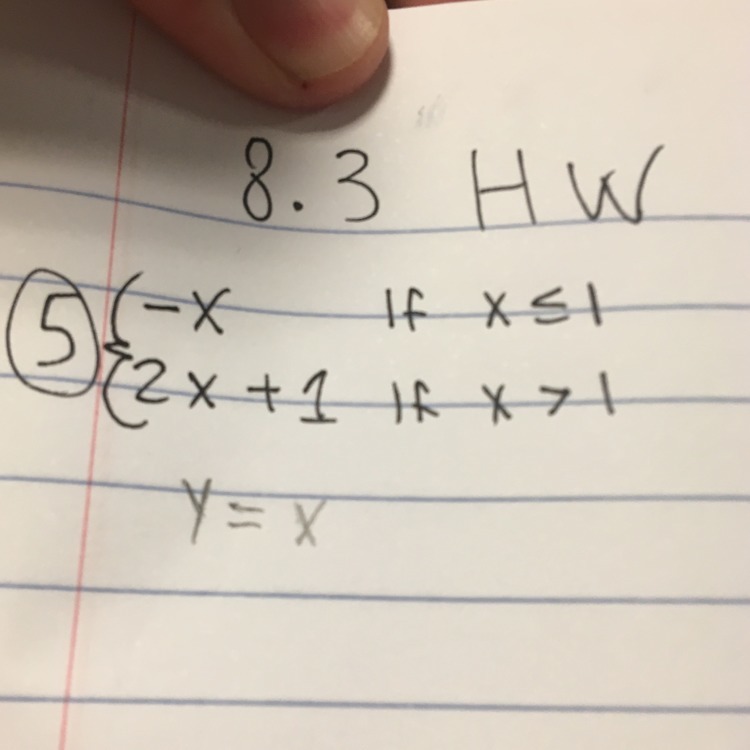 8.3 HW
5 { -x If x ≤ 1
2x + 1 If x > 1
y = x